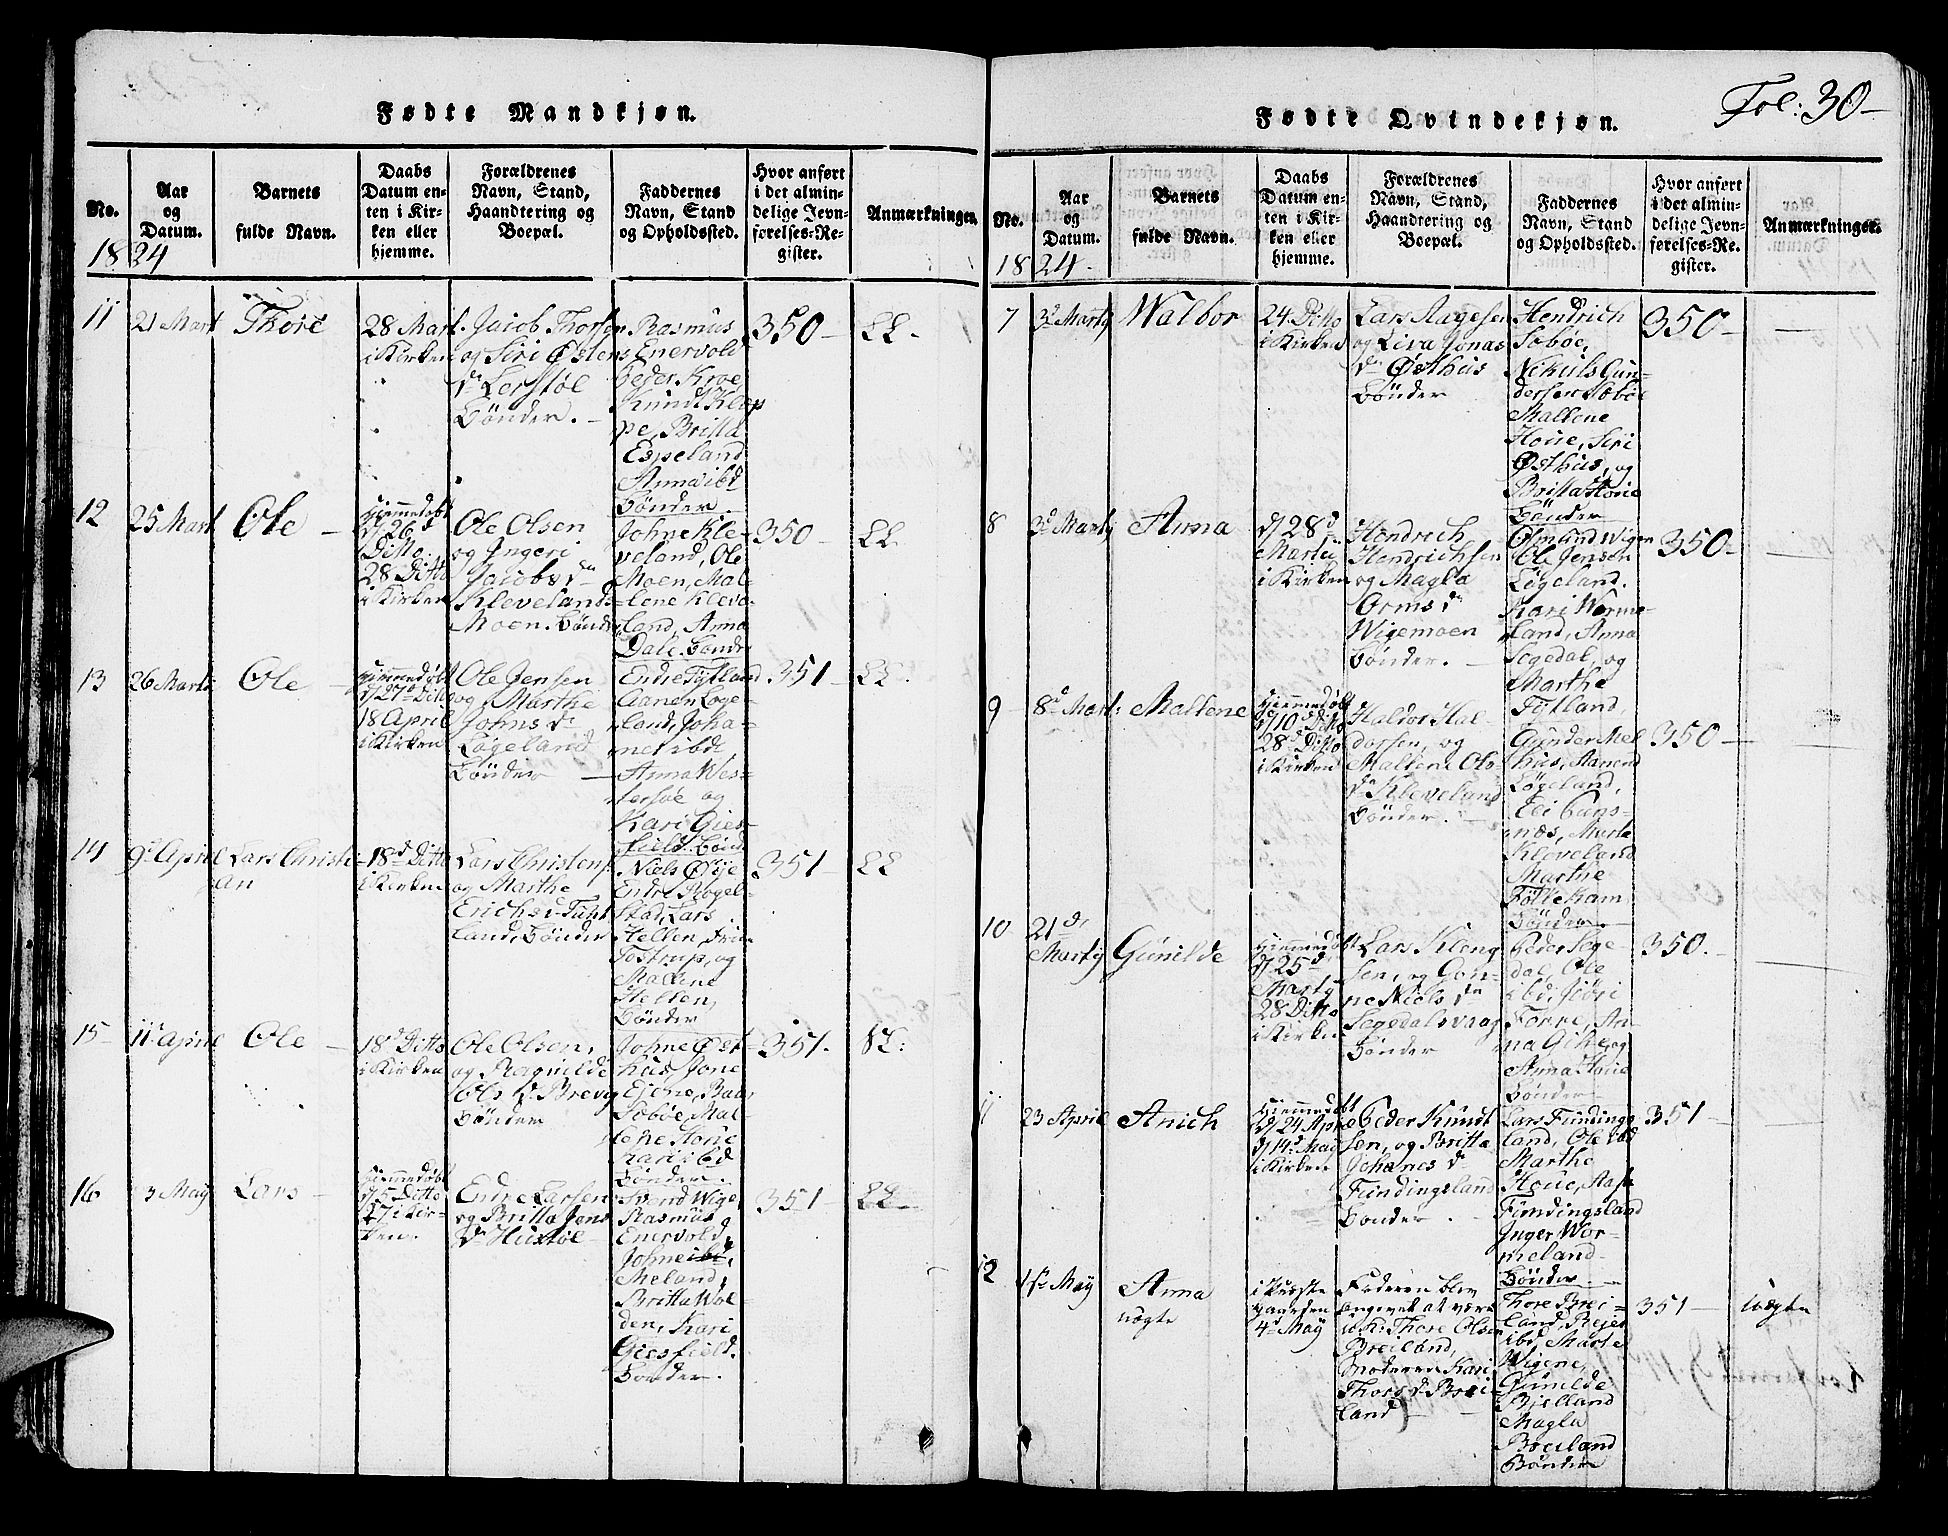 Fødte Mandkjøn.
No.
Aar
og
Datum.
Barnets
fulde Navn.
Daabs
Datum en-
ten i Kir-
ken eller
hjemme.
Forældrenes
Navn, Stand,
Haandtering og
Boepæl.
Faddernes
Navn, Stand
og Opholdssted.
Hvor anført
i det almin-
delige Jevn-
førelses-Re-
gister.
Anmærkninger.
1824
11
21 Mart
Thore
28 Mart.
i Kirken
Jacob Thorsen
og Siri Østens
Dr Lerstøl
Bønder.
Rasmus
Enervold
Peder Kroe
Knudt Klop
pe, Britta
Espeland
Anna ibd
Bønder.
350
12
25 Mart
Ole
Hiemmedøbt
d/26d
Ditto.
28 Ditto
i Kirken
Ole Olsen
og Ingeri
Jacobs Dr
Klevelands
Moen. Bønder
Johne Kle-
veland, Ole
Moen, Mal-
lene Kleve-
land, Anna
Dale. Bønder
350
13
26 Marti
Ole
Hiemmedøbt
d/27d Ditto
18 April
i Kirken
Ole Jensen
og Marthe
Johns Dr
Løgeland
Bønder
Endre Tytland
Aanen Løge-
land, Joha-
nes ibd,
Anna Wes-
tersøe og
Kari Gies-
field. Bønd
351
14
9d April
Lars Christi-
an
18d Ditto
i Kirken
Lars Christens.
og Marthe
Erichs D. Tuht
land, Bønder
Niels Øÿe
Endre Røgel-
stad, Lars
Hellen,
Tostrup, og
Mallene
Hellen,
Bønder
351
15
11 April
Ole
18d Ditto
i Kirken
Ole Olsen,
og Ragnilde
Ols Dr Brevig
Bønder
Johne Øst-
hus, Jone
Eiene, Baar
Søbøe, Mal-
lene Houe
Kari ibd
Bønder.
351.
16
3 Maÿ
Lars
Hiemmedøbt
d/5 Ditto
27 i Kir-
ken.
Endre Larsen
og Britta Jons
Dr Hustøl
Svend Wige
Rasmus
Enervold,
Johne ibd,
Meland,
Britta Wol-
den, Kari
Giesfield.
Bønder.
351
Fødte Qvindekjøn.
Fol: 30
No.
Aar
og
Datum.
Barnets
fulde Navn.
Daabs
Datum en-
ten i Kir-
ken eller
hjemme.
Forældrenes
Navn, Stand,
Haandtering og
Boepæl.
Faddernes
Navn, Stand
og Opholdssted.
Hvor anført
i det almin-
delige Jevn-
førelses-Re-
gister.
Anmærkninger.
1824.
7
3d Martÿ
Walbor
24 Ditto
i Kirken
Lars Aagesen
og Liva Jonas
Dr Østhus
Bønder
Hendrich
Søbøe,
Nekuls Gun-
dersen Søbøe
Mallene
Houe, Siri
Østhus, og
Britta Houe
Bønder
350
8
3d Martÿ
Anna
d/28d
Martii
i Kirken
Hendrich
Hendrichsen
og Magla
Orms Dr
Wigemoen
Bønder.
Osmund Wigen
Ole Jensen
Løgeland.
Kari Worme-
land, Anna
Segedal, og
Marthe
Tytland,
350
9
8d Mart:
Mallene
Hiemmedøbt
d/10d Ditto
28d Ditto
i Kirken
Haldor Hal-
dorsen, og
Mallene Ols-
Dr Kleveland
Bønder.
Gunder Mel
hus, Aanend
Løgeland,
Eli Gans-
næs, Marta
Kleveland
Marthe
Føllekam
Bønder.
350
10
21d
Martÿ
Gunilde
Hiemmedøbt
d/25d
Martÿ
28 Ditto
i Kirken
Lars Klong
sen, og Gon-
ne Niels Dr
Segedalsvaag
Bønder
Peder Sege
dal, Ole
ibd, Jøri
Torre, An-
na Gihe, og
Anna Houe
Bønder
350.
11
23 April
Anich
Hiemmedøbt
d/24 Apr
d/14d Maÿ
i Kirken
Peder Knudt
sen, og Britta
Johanes Dr
Fundingsland
Bonder.
Lars Funding
land, Ole ibd
Marthe
Houe,
Fundingsland
Inger Wor-
meland
Bønder.
351
12
1st Maÿ
Anna
uægte
4d Maÿ
Faderen blev
angivet at være
Thore Olsen
Breiland,
Moderen Kari
Thors Dr Brei-
land
Thore Brei-
land, Reier
ibd, Marte
Wigene,
Gunilde
Bielland
Magla
Breiland
Bønder
351
uægte